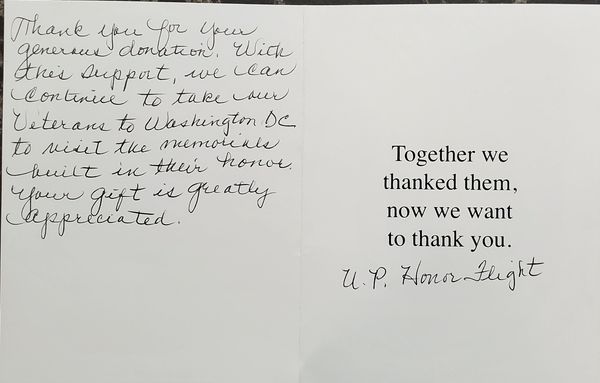 Thank you for your
generous donation. With
this support, we can
continue to take our
Veterans to Washington DC
to visit the memorials
built in their honor.
Your gift is greatly
appreciated.
Together we
thanked them,
now we want
to thank you.
U.P. Honor Flight